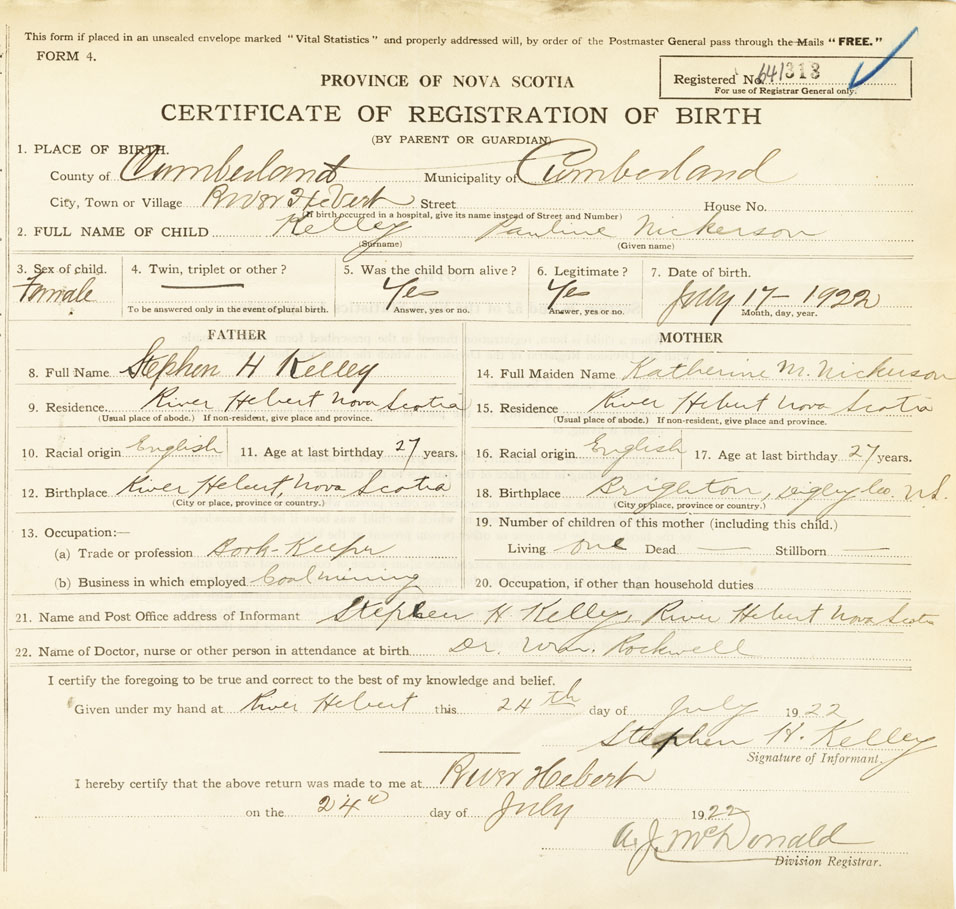 This form if placed in an unsealed envelope marked "Vital Statistics" and properly addressed will, by order of the Postmaster General pass through the Mails "FREE."
FORM 4.
PROVINCE OF NOVA SCOTIA
Registered No. 641313
For use of Registrar General only.
CERTIFICATE OF REGISTRATION OF BIRTH
(BY PARENT OR GUARDIAN)
1. PLACE OF BIRTH.
County of Cumberland Municipality of Cumberland
City, Town or Village River Hebert Street House No.
(If birth occurred in a hospital, give its name instead of Street and Number)
2. FULL NAME OF CHILD Kelley Pauline Nickerson
(Surname) (Given name)
3. Sex of child. 4. Twin, triplet or other? 5. Was the child born alive? 6. Legitimate? 7. Date of birth.
Female — Yes Yes July 17 - 1922
To be answered only in the event of plural birth. Answer, yes or no. Answer, yes or no. Month, day, year.
FATHER MOTHER
8. Full Name Stephen H Kelley 14. Full Maiden Name Katherine M. Nickerson
9. Residence. River Hebert Nova Scotia 15. Residence River Hebert Nova Scotia
(Usual place of abode.) If non-resident, give place and province. (Usual place of abode.) If non-resident, give place and province.
10. Racial origin English 11. Age at last birthday 27 years. 16. Racial origin English 17. Age at last birthday 27 years.
12. Birthplace River Hebert, Nova Scotia 18. Birthplace Brighton, Digby Co. N.S.
(City or place, province or country.) (City or place, province or country.)
13. Occupation:— 19. Number of children of this mother (including this child.)
(a) Trade or profession Book-Keeper Living one Dead — Stillborn —
(b) Business in which employed Coal mining 20. Occupation, if other than household duties
21. Name and Post Office address of Informant Stephen H Kelley, River Hebert Nova Scotia
22. Name of Doctor, nurse or other person in attendance at birth Dr. Wm. Rockwell
I certify the foregoing to be true and correct to the best of my knowledge and belief.
Given under my hand at River Hebert this 24th day of July 1922
Stephen H. Kelley
Signature of Informant.
I hereby certify that the above return was made to me at River Hebert
on the 24th day of July 1922
A. J. McDonald
Division Registrar.